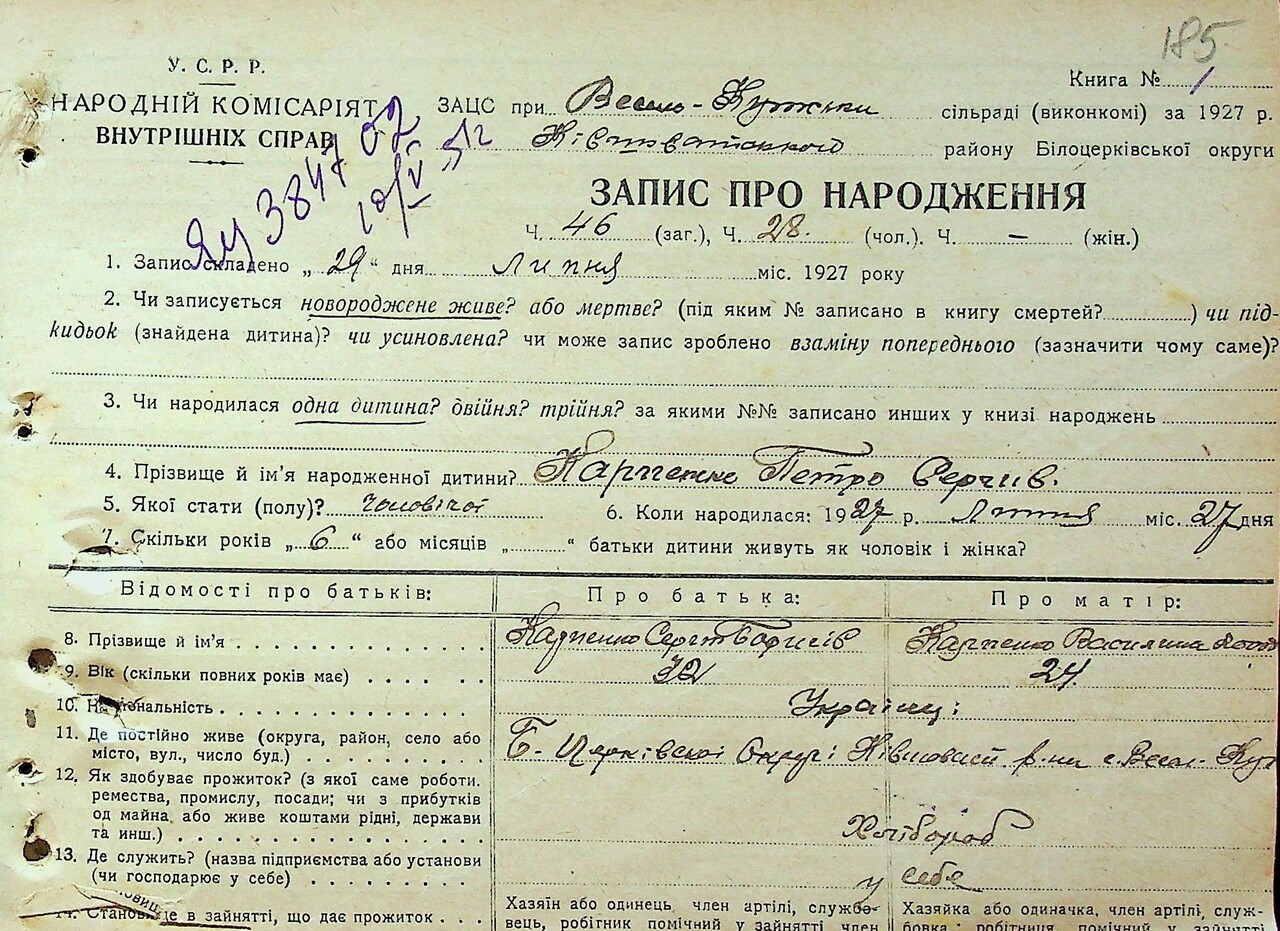 185
У. С. Р. Р.
НАРОДНІЙ КОМІСАРІЯТ
ВНУТРІШНІХ СПРАВ
Книга № 1
ЗАЦС при Весело-Кутськи сільраді (виконкомі) за 1927 р.
району Білоцерківської округи
ЯЦ 384702
10/V-51
ЗАПИС ПРО НАРОДЖЕННЯ
Ч. 46 (заг.), Ч. 28. (чол.). Ч. — (жін.)
1. Запис складено „ 29 “ дня Липня міс. 1927 року
2. Чи записується новороджене живе? або мертве? (під яким № записано в книгу смертей?) чи під-
кидьок (знайдена дитина)? чи усиновлена? чи може запис зроблено взаміну попереднього (зазначити чому саме)?
3. Чи народилася одна дитина? двійня? трійня? за якими №№ записано инших у книзі народжень
4. Прізвище й ім’я народженної дитини? Карпенко Петро Сергіїв.
5. Якої стати (полу)? чоловічої 6. Коли народилася: 1927 р. Липня міс. 27 дня
7. Скільки років „ 6 “ або місяців „ “ батьки дитини живуть як чоловік і жінка?
Відомості про батьків: Про батька: Про матір:
8. Прізвище й ім’я Карпенко Сергій Борисів Карпенко Василина
9. Вік (скільки повних років має) 32 24
10. Національність Українці
11. Де постійно живе (округа, район, село або
місто, вул., число буд.) Б. Церківської Округи р-ну с. Весел. Кут
12. Як здобуває прожиток? (з якої саме роботи.
ремества, промислу, посади; чи з прибутків
од майна, або живе коштами рідні, держави
та инш.) Хлібороб
13. Де служить? (назва підприємства або установи
(чи господарює у себе) у себе
14. Становище в зайнятті, що дає прожиток
Хазяїн або одинець, член артілі, службо-
вець, робітник помічний у зайнятті член
Хазяйка або одиначка, член артілі, служ-
бовка; робітниця, помічний у зайнятті